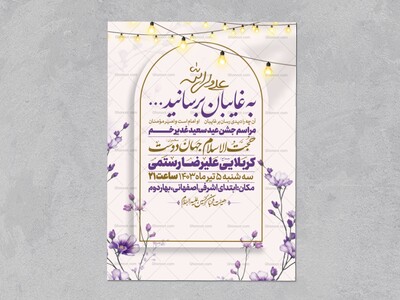 علی ولی الله
به غایبان برسانید...
مراسم جشن عید سعید غدیر خم
حجت الاسلام جهان دوست
کربلایی علیرضا رستمی
سه شنبه ۵ تیر ماه ۱۴۰۳ ساعت ۲۱
مکان: ابتدای اشرفی اصفهانی، بهار دوم